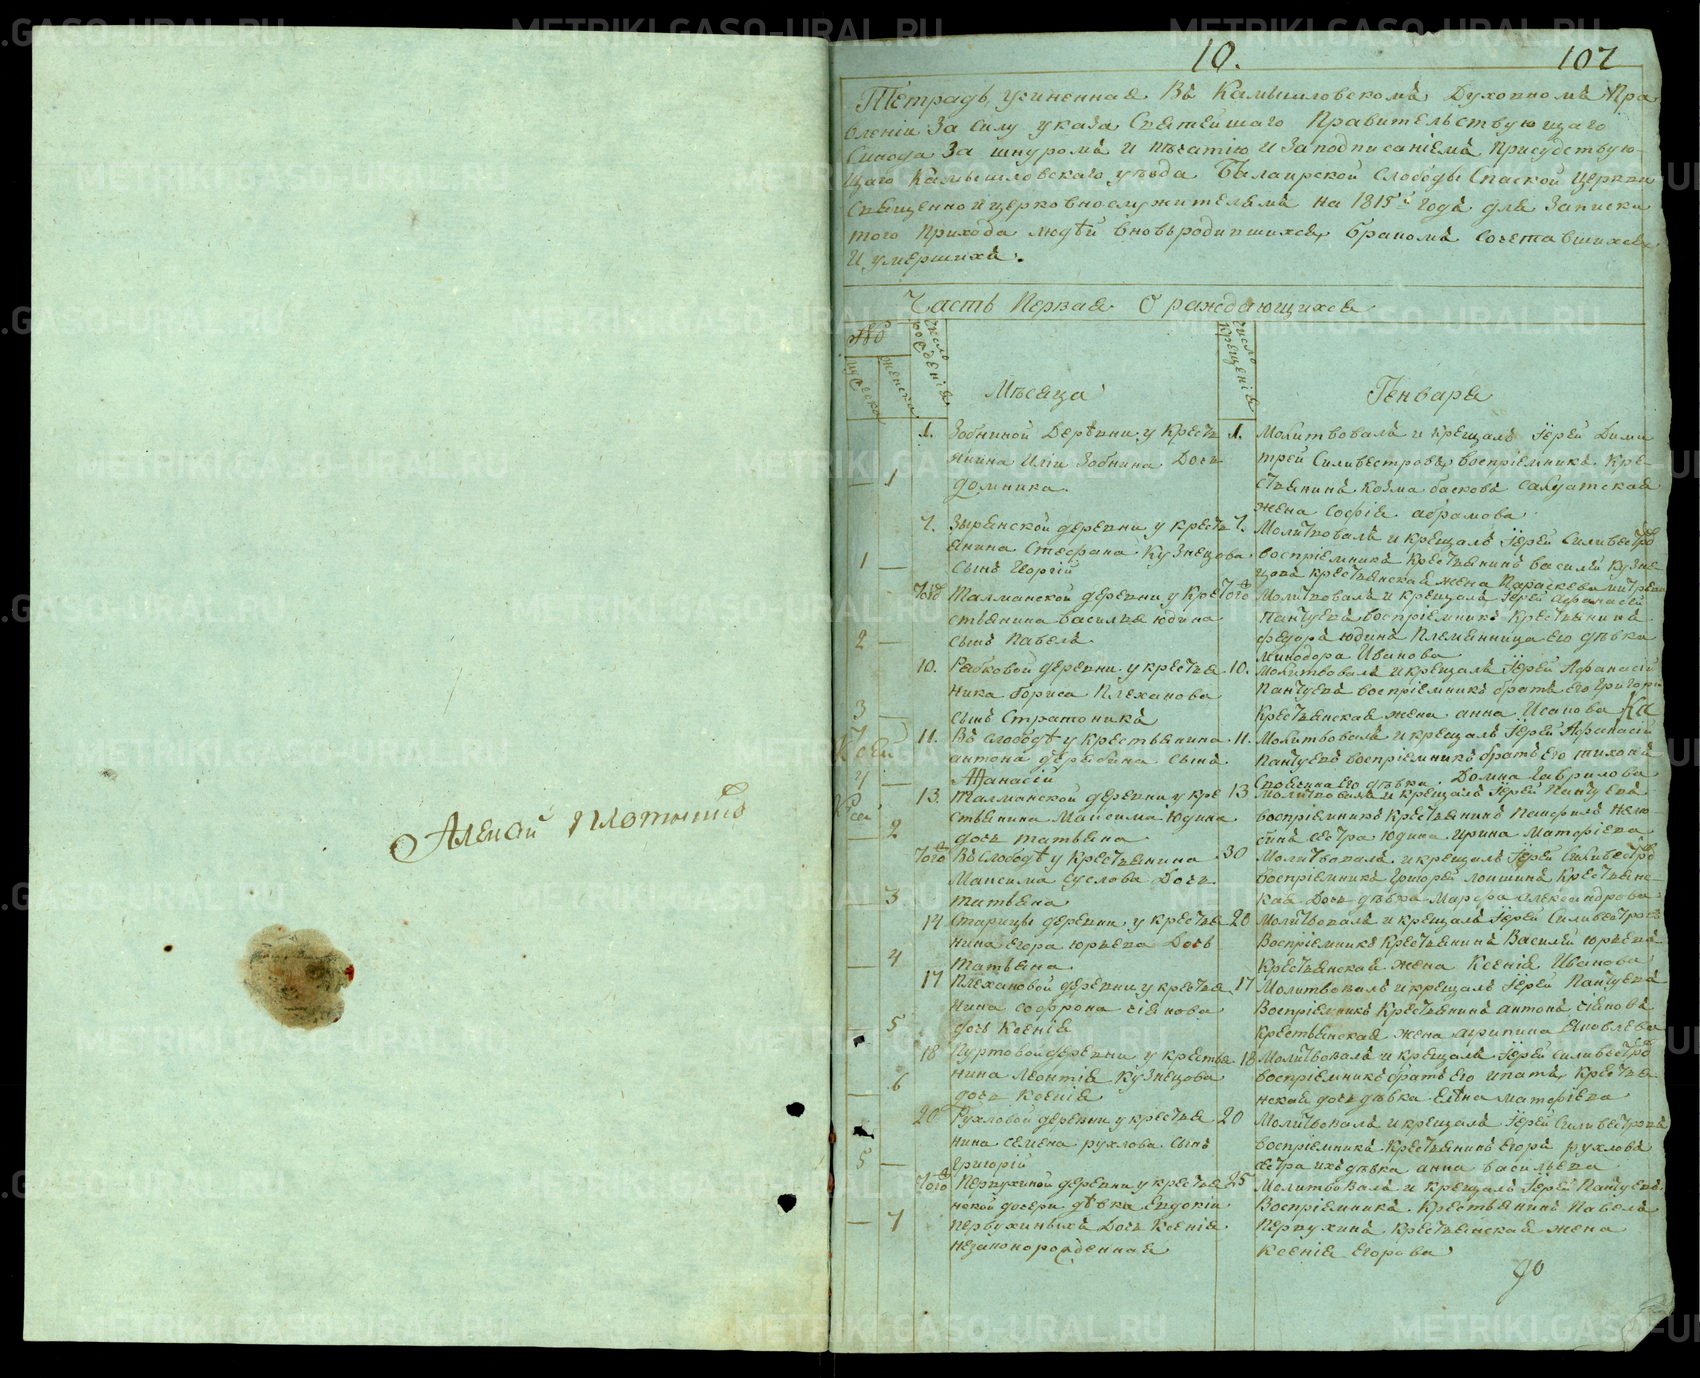 Алексѣй Плотников
10.
107
Тетрадь учиненная въ Камышловскомъ Духовномъ Пра
вленіи за силу указа Святейшаго Правительствующаго
Синода за шнуромъ и пѣчатію и заподписаніемъ Присудствую
щаго Камышловскаго уѣзда Балаирской Слободы Спаской Церкви
Священно и церковнослужителямъ на 1815й годъ для Записки
того Прихода людѣй вновьродившихся, бракомъ сочетавшихся
и умершихъ.
Часть Первая О раждающихся
число рожденія
число крещенія
мужеска
женска
Мѣсяца
Генваря
1. Зобниной Деревни у Кресть
янина Иліи Зобнина Дочь
1 домника.
1. Молитвовалъ и крещалъ Іерей Дими
трей Силивестровъ, воспріемникъ кре
стьянинъ Козма басковъ салдатская
жена Софія абрамова
7. Зырянской деревни у кресть
янина Стефана Кузнецова
1 сынъ Георгій
7. Молитвовалъ и крещалъ Іерей Силивестровъ
воспріемникъ крестьянинъ василей кузне
цовъ крестьянская жена Параскева
того Талманской деревни у кре
стьянина василья юдина
2 сынъ Павелъ
того Молитвовалъ и крещалъ Іерей Афанасей
Пантуевъ воспріемникъ крестьянинъ
федоръ юдинъ Племянница его дѣвка
минодора Иванова
10. Рябковой деревни у крестья
нина бориса Плеханова
3 сынъ Стратоникъ
10. Молитвовалъ и крещалъ Іерей Афанасій
Пантуевъ воспріемникъ братъ его григорій
крестьянская жена анна Исакова
11. Въ слободѣ у крестьянина
антона дерябина сынъ
4 Афанасій
11. Молитвовалъ и крещалъ Іерей Афанасій
Пантуевъ воспріемникъ братъ его тихонъ
его дѣвка Домна Гаврилова
13. Талманской деревни у кре
стьянина Максима Юдина
2 дочь татьяна
13 Молитвовалъ и крещалъ Іерей Пантуевъ
воспріемникъ крестьянинъ Панфилъ
сестра юдина ирина Матфіева
того Въ слободѣ у крестьянина
Максима Суслова Дочь
3 татьяна
30 Молитвовалъ и крещалъ Іерей Силивестровъ
воспріемникъ григорей крестьянс
кая дочь дѣвка Марфа александрова
14 Старицы деревни у крестья
нина егора юрьева дочь
4 татьяна
20 Молитвовалъ и крещалъ Іерей Силивестровъ
Воспріемникъ крестьянинъ Василей юрьевъ
крестьянская жена Ксенія Иванова
17 Плехановой деревни у крестья
нина софрона
5 дочь Ксенія
17 Молитвовалъ и крещалъ Іерей Пантуевъ
Воспріемникъ Крестьянинъ антонъ
крестьянская жена агрипина яковлева
18 деревни у крестья
нина леонтія Кузнецова
6 дочь Ксенія
18 Молитвовалъ и крещалъ Іерей Силивестровъ
воспріемникъ братъ его ипатъ, крестья
нская дочь дѣвка елѣна матфіева
20 Рухловой деревни у крестья
нина семена рухлова сынъ
5 григорій
20 Молитвовалъ и крещалъ Іерей Силивестровъ
воспріемникъ крестьянинъ егоръ рухловъ
сестра ихъ дѣвка анна васильева
того Первухиной деревни у крестья
нской дочери дѣвки евдокіи
7 первухиныхъ Дочь Ксенія
незаконорожденная
25 Молитвовалъ и крещалъ Іерей Пантуевъ
Воспріемникъ крестьянинъ Павелъ
Первухинъ крестьянская жена
ксенія егорова
METRIKI.GASO-URAL.RU